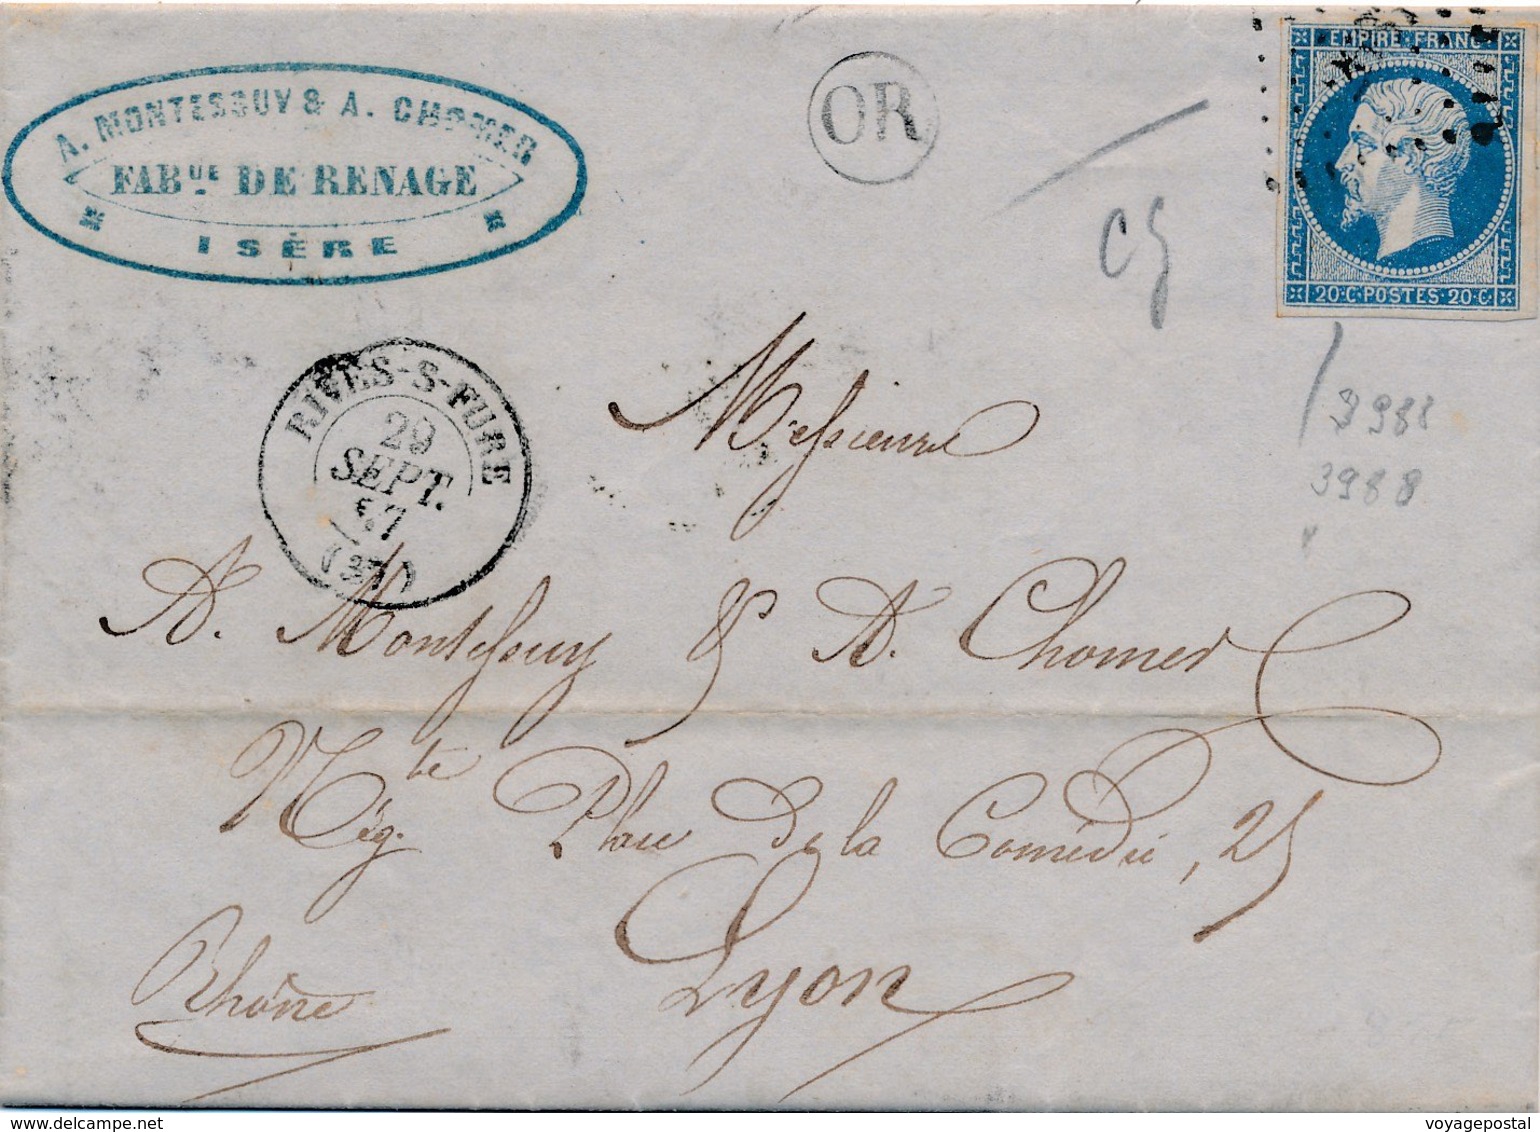 A. MONTESSUY & A. CHOMER
FAB^UE DE RENAGE
ISÈRE
OR
EMPIRE FRANC
20·C·POSTES·20·C·
RIVES-S-FURE
29
SEPT.
57
(37)
3988
3988
Messieurs
A. Montessuy & A. Chomer
Nég.te Place de la Comédie, 25
Lyon
Rhône
voyagepostal